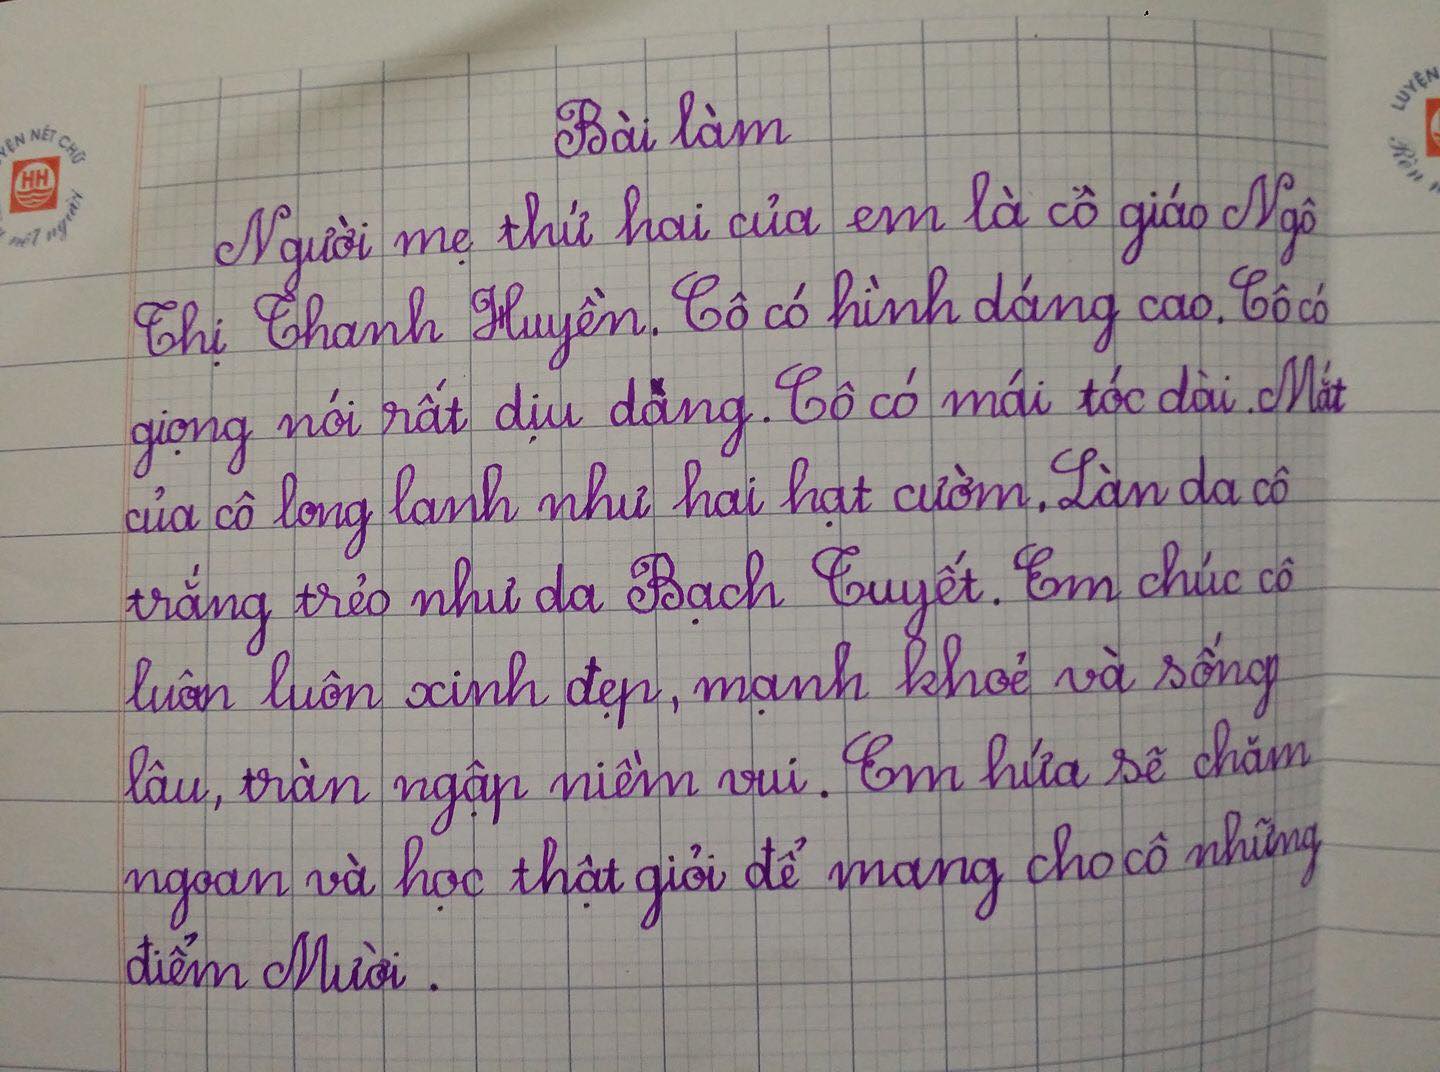 Bài làm
Người mẹ thứ hai của em là cô giáo Ngô
Thị Thanh Huyền. Cô có hình dáng cao. Cô có
giọng nói rất dịu dàng. Cô có mái tóc dài. Mắt
của cô long lanh như hai hạt cườm. Làn da cô
trắng trẻo như da Bạch Tuyết. Em chúc cô
luôn luôn xinh đẹp, mạnh khoẻ và sống
lâu, tràn ngập niềm vui. Em hứa sẽ chăm
ngoan và học thật giỏi để mang cho cô những
điểm Mười.
HH
LUYỆN